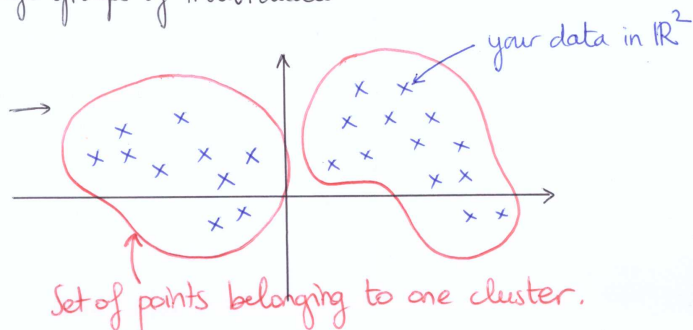 your data in ℝ²
Set of points belonging to one cluster.